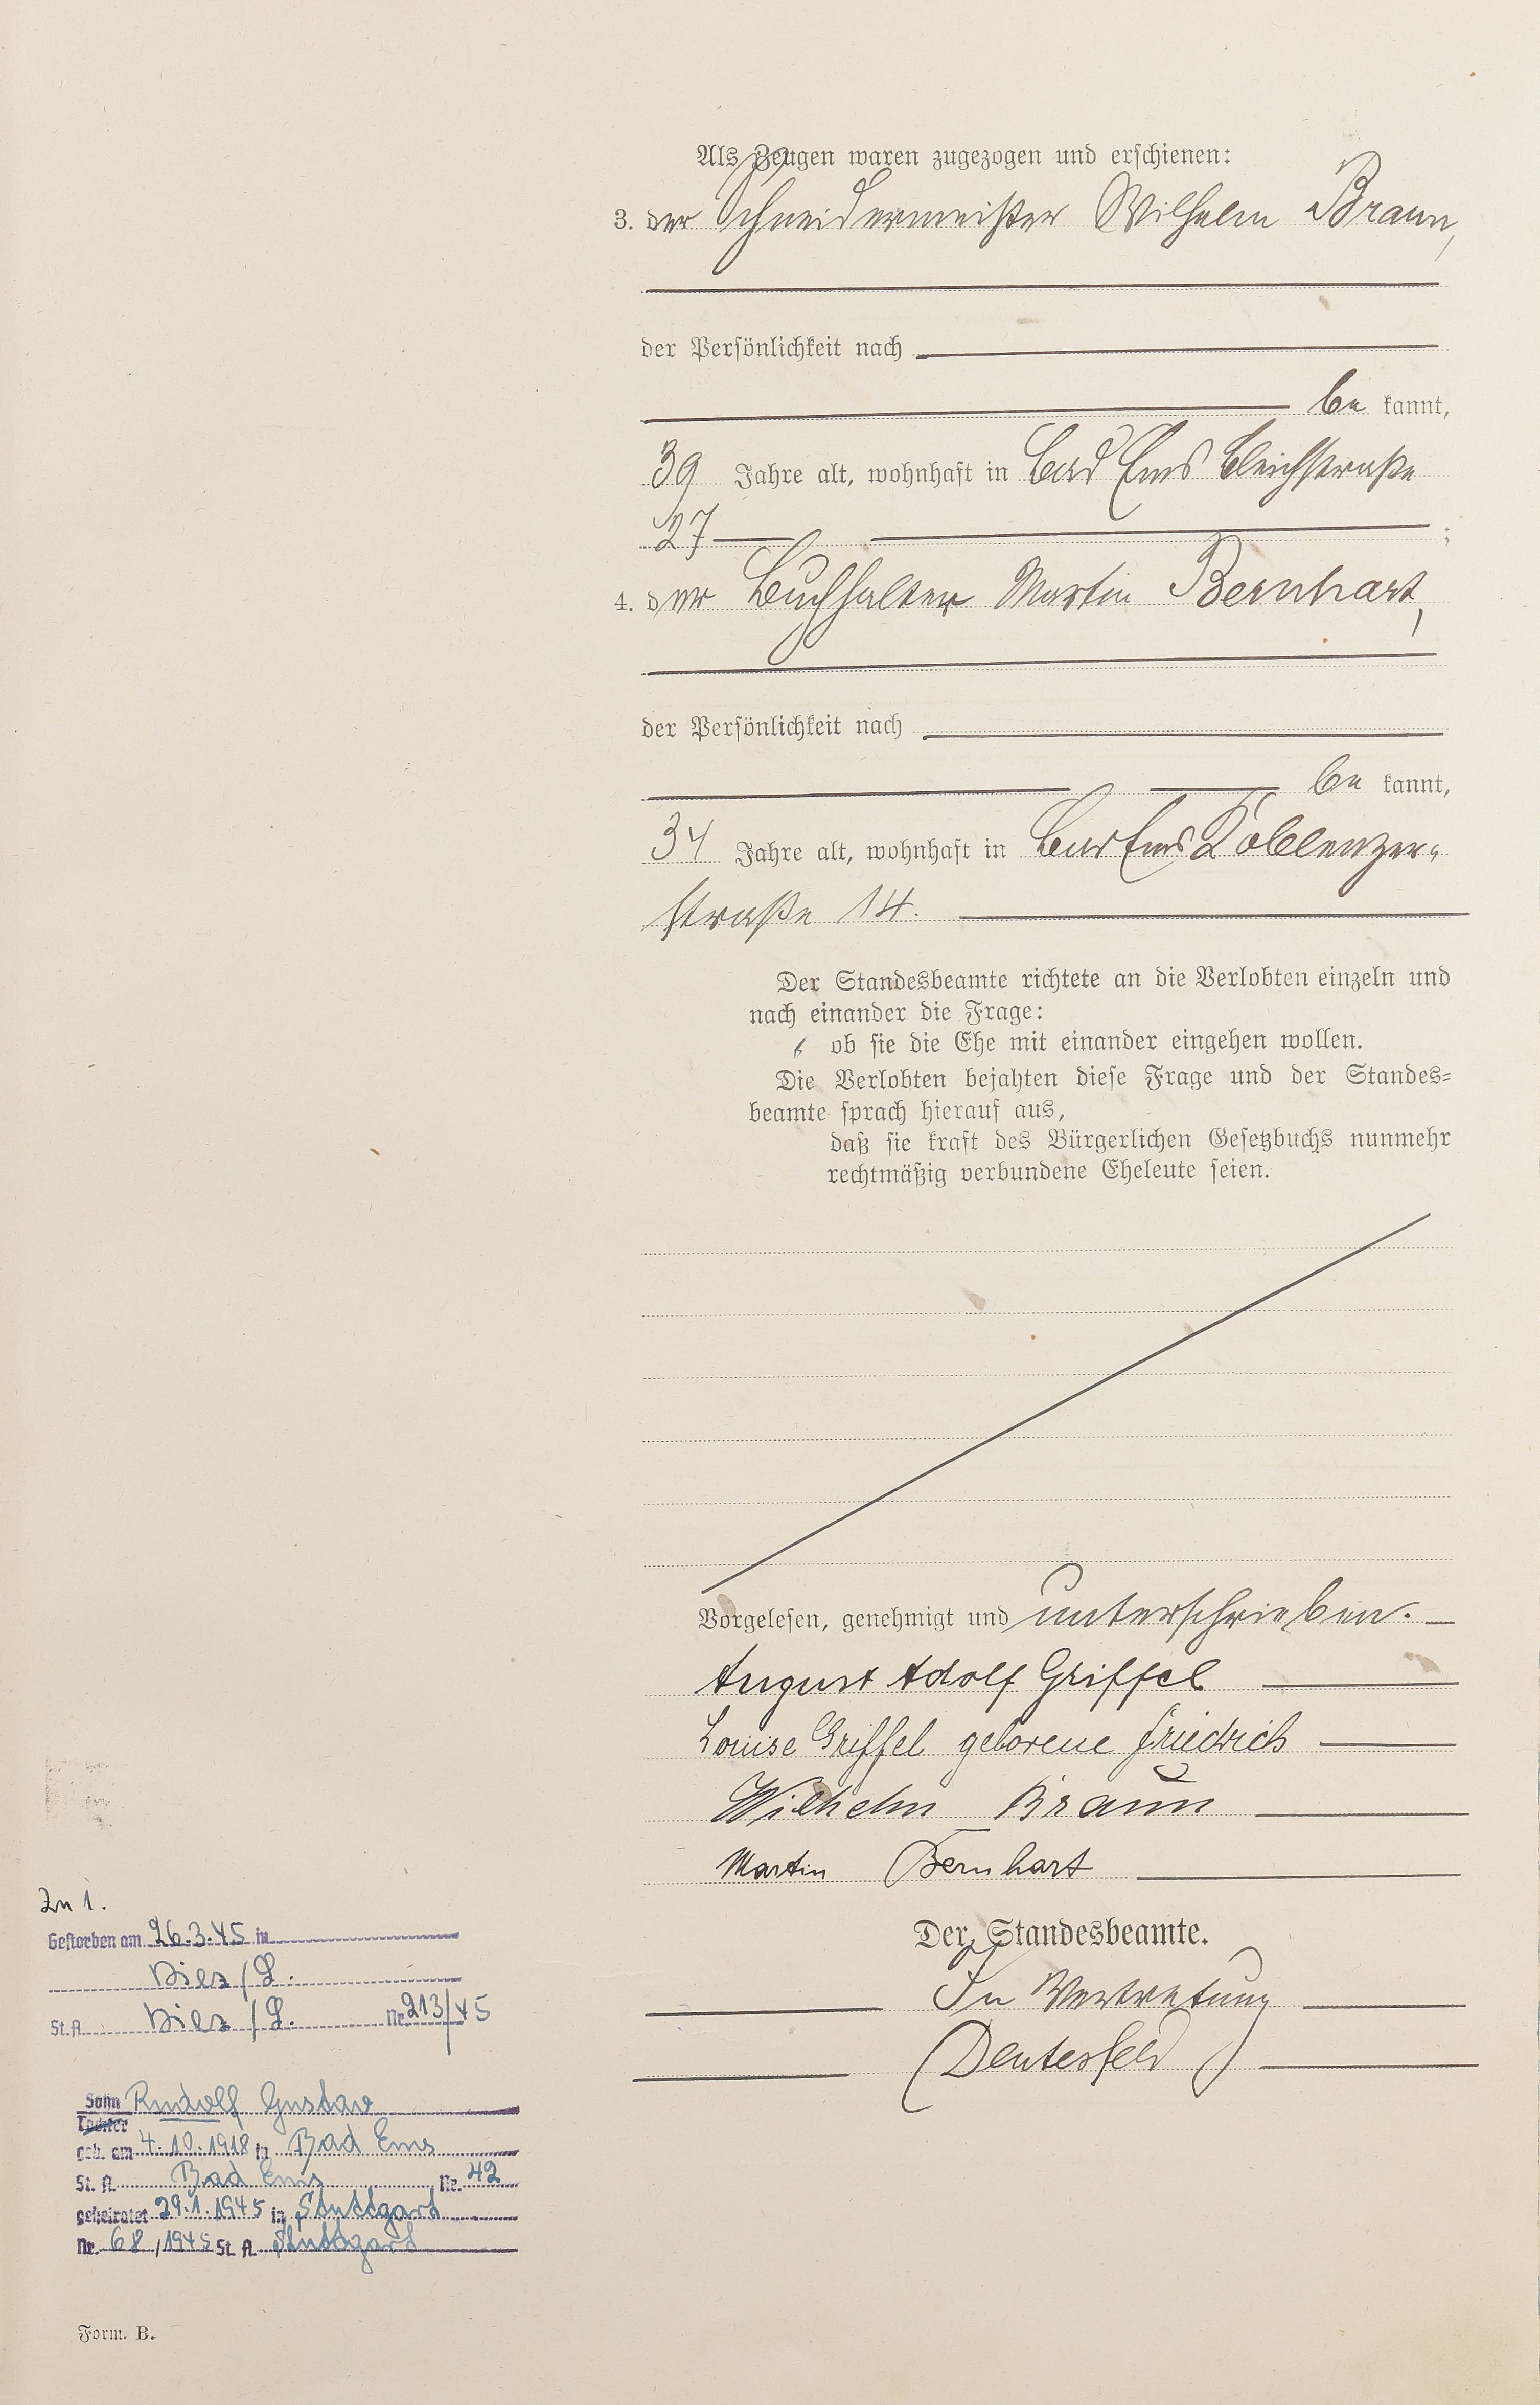 Als Zeugen waren zugezogen und erschienen:
3. der Schneidermeister Wilhelm Braun,
der Persönlichkeit nach
be kannt,
39 Jahre alt, wohnhaft in Bad Ems Bleichstraße
27 ;
4. der Buchhalter Martin Bernhart,
der Persönlichkeit nach
be kannt,
34 Jahre alt, wohnhaft in Bad Ems Koblenzer-
straße 14.
Der Standesbeamte richtete an die Verlobten einzeln und
nach einander die Frage:
ob sie die Ehe mit einander eingehen wollen.
Die Verlobten bejahten diese Frage und der Standes-
beamte sprach hierauf aus,
daß sie kraft des Bürgerlichen Gesetzbuchs nunmehr
rechtmäßig verbundene Eheleute seien.
Vorgelesen, genehmigt und unterschrieben.
August Adolf Griffel
Louise Griffel geborene Friedrich
Wilhelm Braun
Martin Bernhart
Der Standesbeamte.
In Vertretung
(Deutesfeld)
Zu 1.
Gestorben am 26.3.45 in
Diez/L.
St.A. Diez/L. Nr. 213/45
Sohn Rudolf Gustav
Tochter
geb. am 4.10.1918 in Bad Ems
St. A. Bad Ems Nr. 42
geheiratet 29.1.1945 in Stuttgart
Nr. 68/1945 St. A. Stuttgart
Form. B.